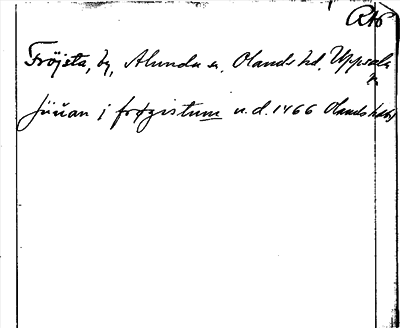 Fröjsta, by, Alunda sn, Olands hd, Uppsala
jönan j frøgistum u.d. 1466 Olands hd